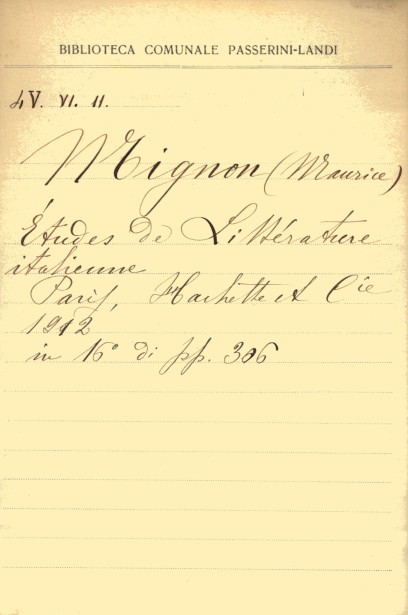 BIBLIOTECA COMUNALE PASSERINI-LANDI
4V. VI. 11.
Mignon (Maurice)
Études de Littérature
italienne
Paris, Hachette et Cie
1912
in 16° di pp. 306